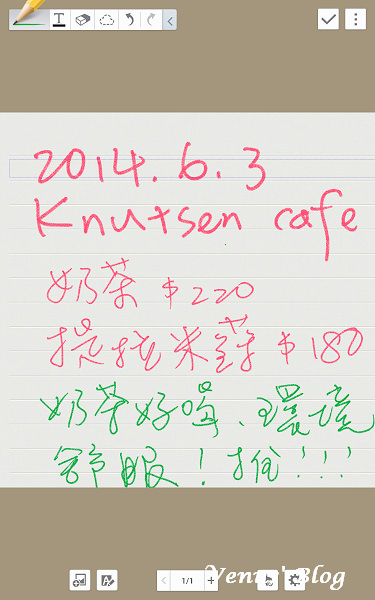 T
2014.6.3
Knutsen cafe
奶茶 $220
提拉米蘇 $180
奶茶好喝、環境
舒服！推！！！
1/1
Blog